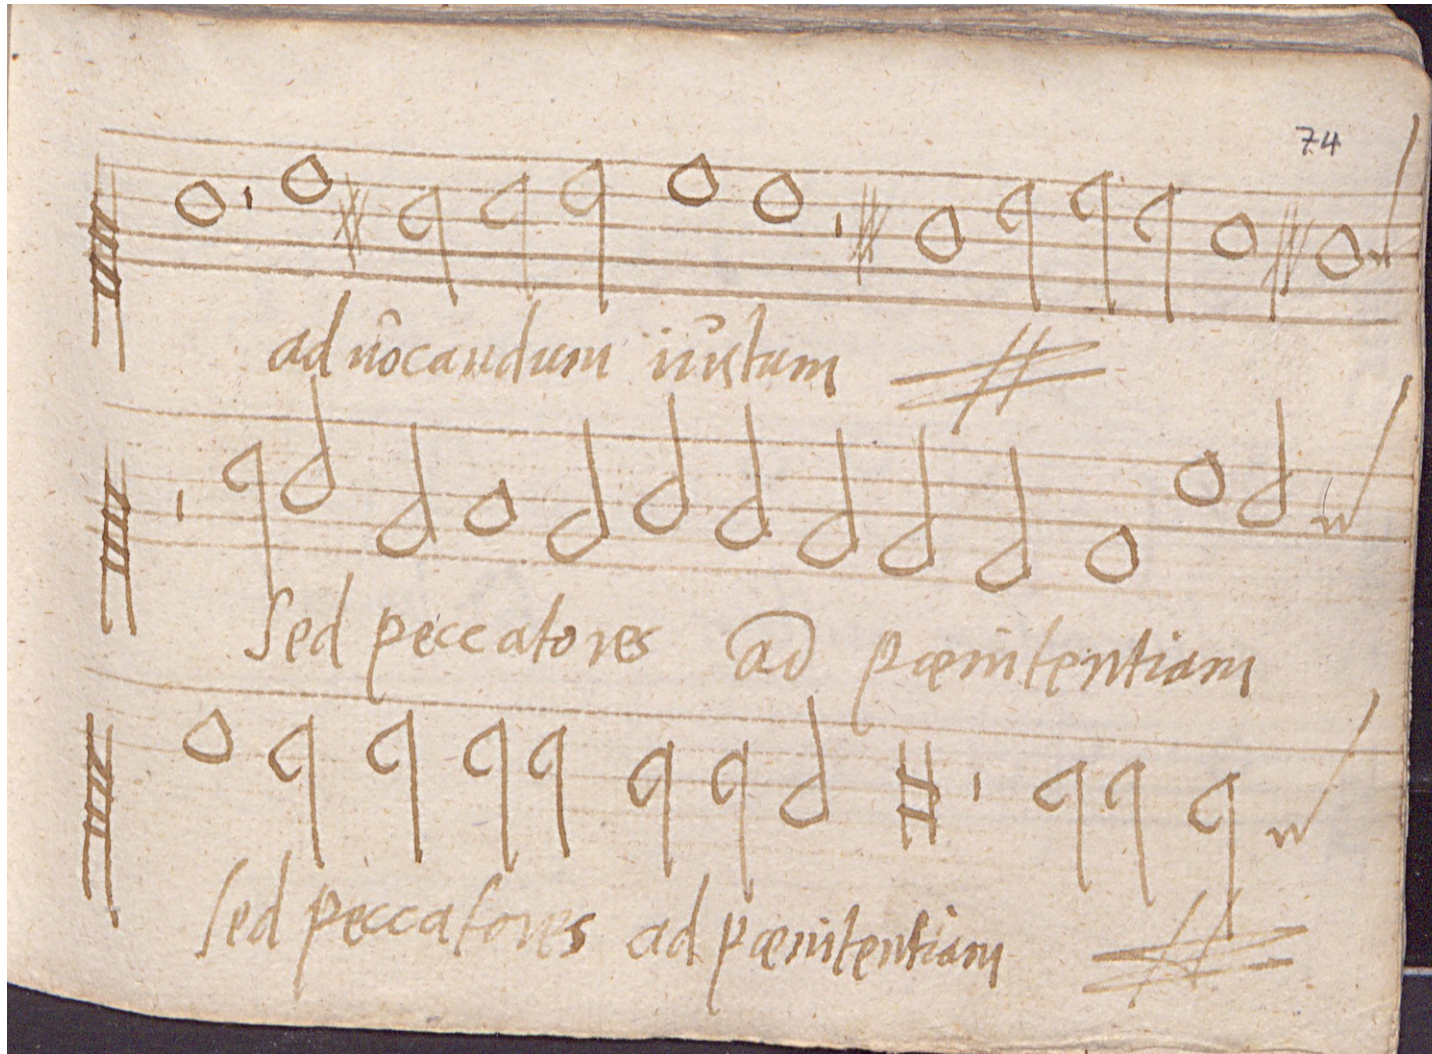 74
ad vocandum iustum
Sed peccatores ad pænitentiam
Sed peccatores ad pænitentiam